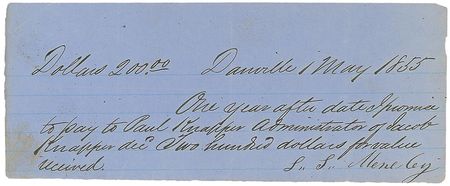 Dollars 200.00 Danville 1 May 1855
One year after date I promise
to pay to Paul Knapper Administrator of Jacob
Knapper decd Two hundred dollars for value
received. L. L.